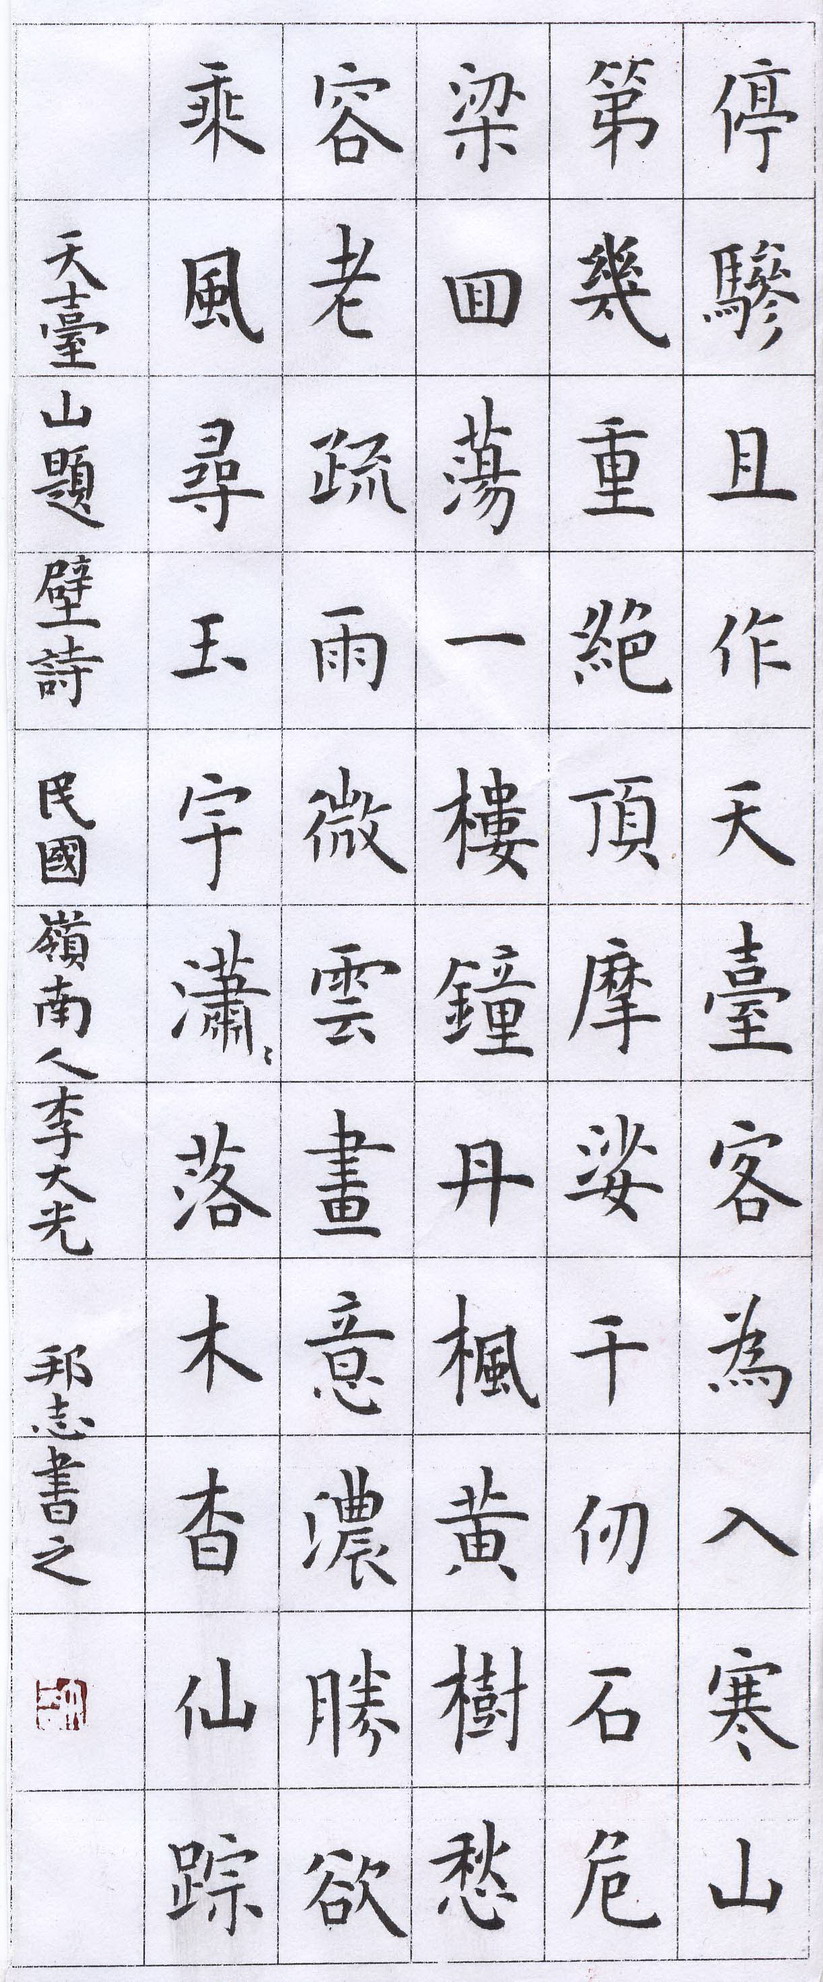 停驂且作天臺客為入寒山
第幾重絶頂摩娑千仞石危
梁囬蕩一樓鐘丹楓黄樹愁
容老疏雨微雲畫意濃勝欲
乘風尋玉宇瀟〻落木杳仙踪
天臺山題壁詩 民國嶺南人李大光 邦志書之